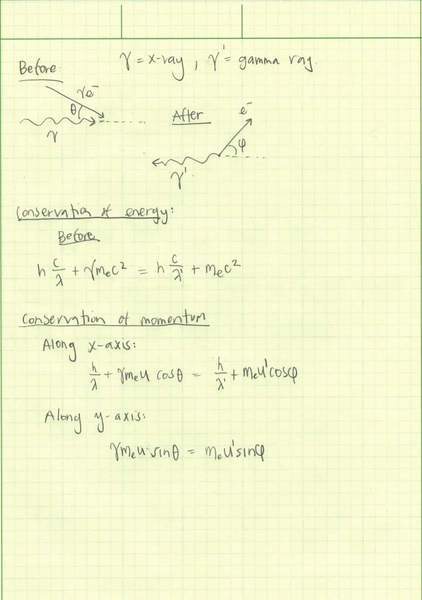 γ = x-ray , γ' = gamma ray.
Before
γe⁻
θ
γ
After
e⁻
φ
γ'
Conservation of energy:
Before
h c/λ + γmₑc² = h c/λ' + mₑc²
Conservation of momentum
Along x-axis:
h/λ + γmₑu cosθ = h/λ' + mₑu'cosφ
Along y-axis:
γmₑu sinθ = mₑu'sinφ